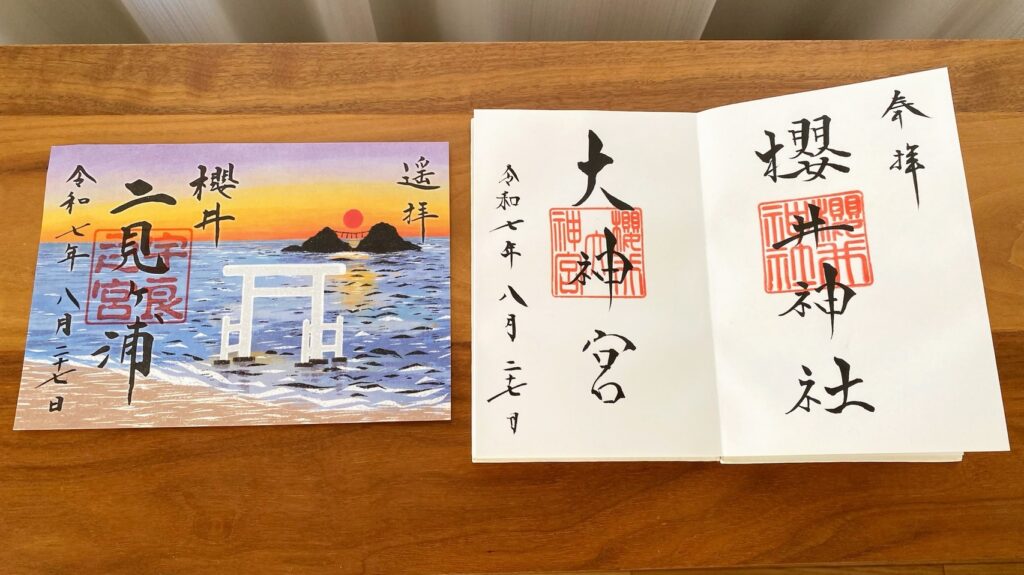 遥拝
櫻井
二見ヶ浦
令和七年 八月二十七日
奉拝
櫻井神社
櫻井神社
大神宮
櫻井大神宮
令和七年 八月二十七日